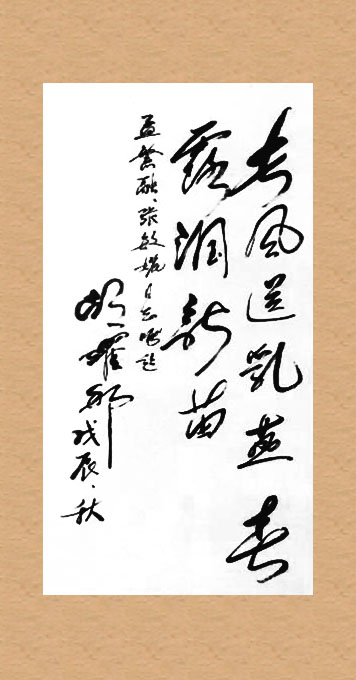 东风送乳燕春
露润新苗
孟 融、张敏 同志嘱题
胡耀邦
戊辰、秋